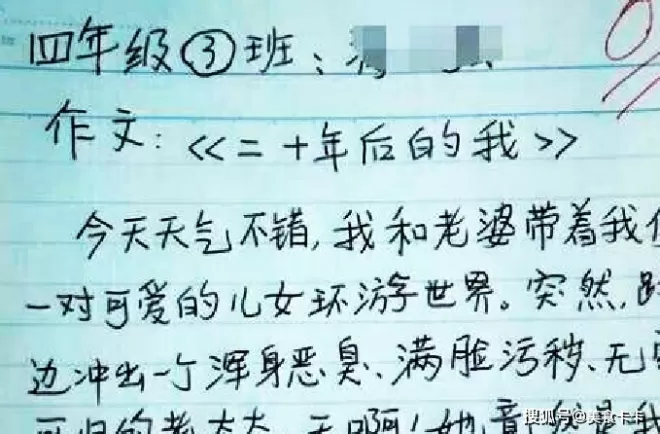 四年级③班:
作文:<<二十年后的我>>
今天天气不错,我和老婆带着我
一对可爱的儿女环游世界。突然,
边冲出一个浑身恶臭、满脸污秽、无
可归的老太太,天啊!她竟然是我
搜狐号@美食卡卡